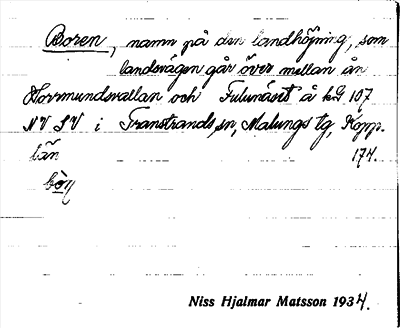 Boren, namn på den landhöjning, som
landsvägen går över mellan ån
Horrmundsvallan och Fulunäset å kbl 107
NV SV i Transtrands sn, Malungs tg, Kopp.
län 174.
Niss Hjalmar Matsson 1934.